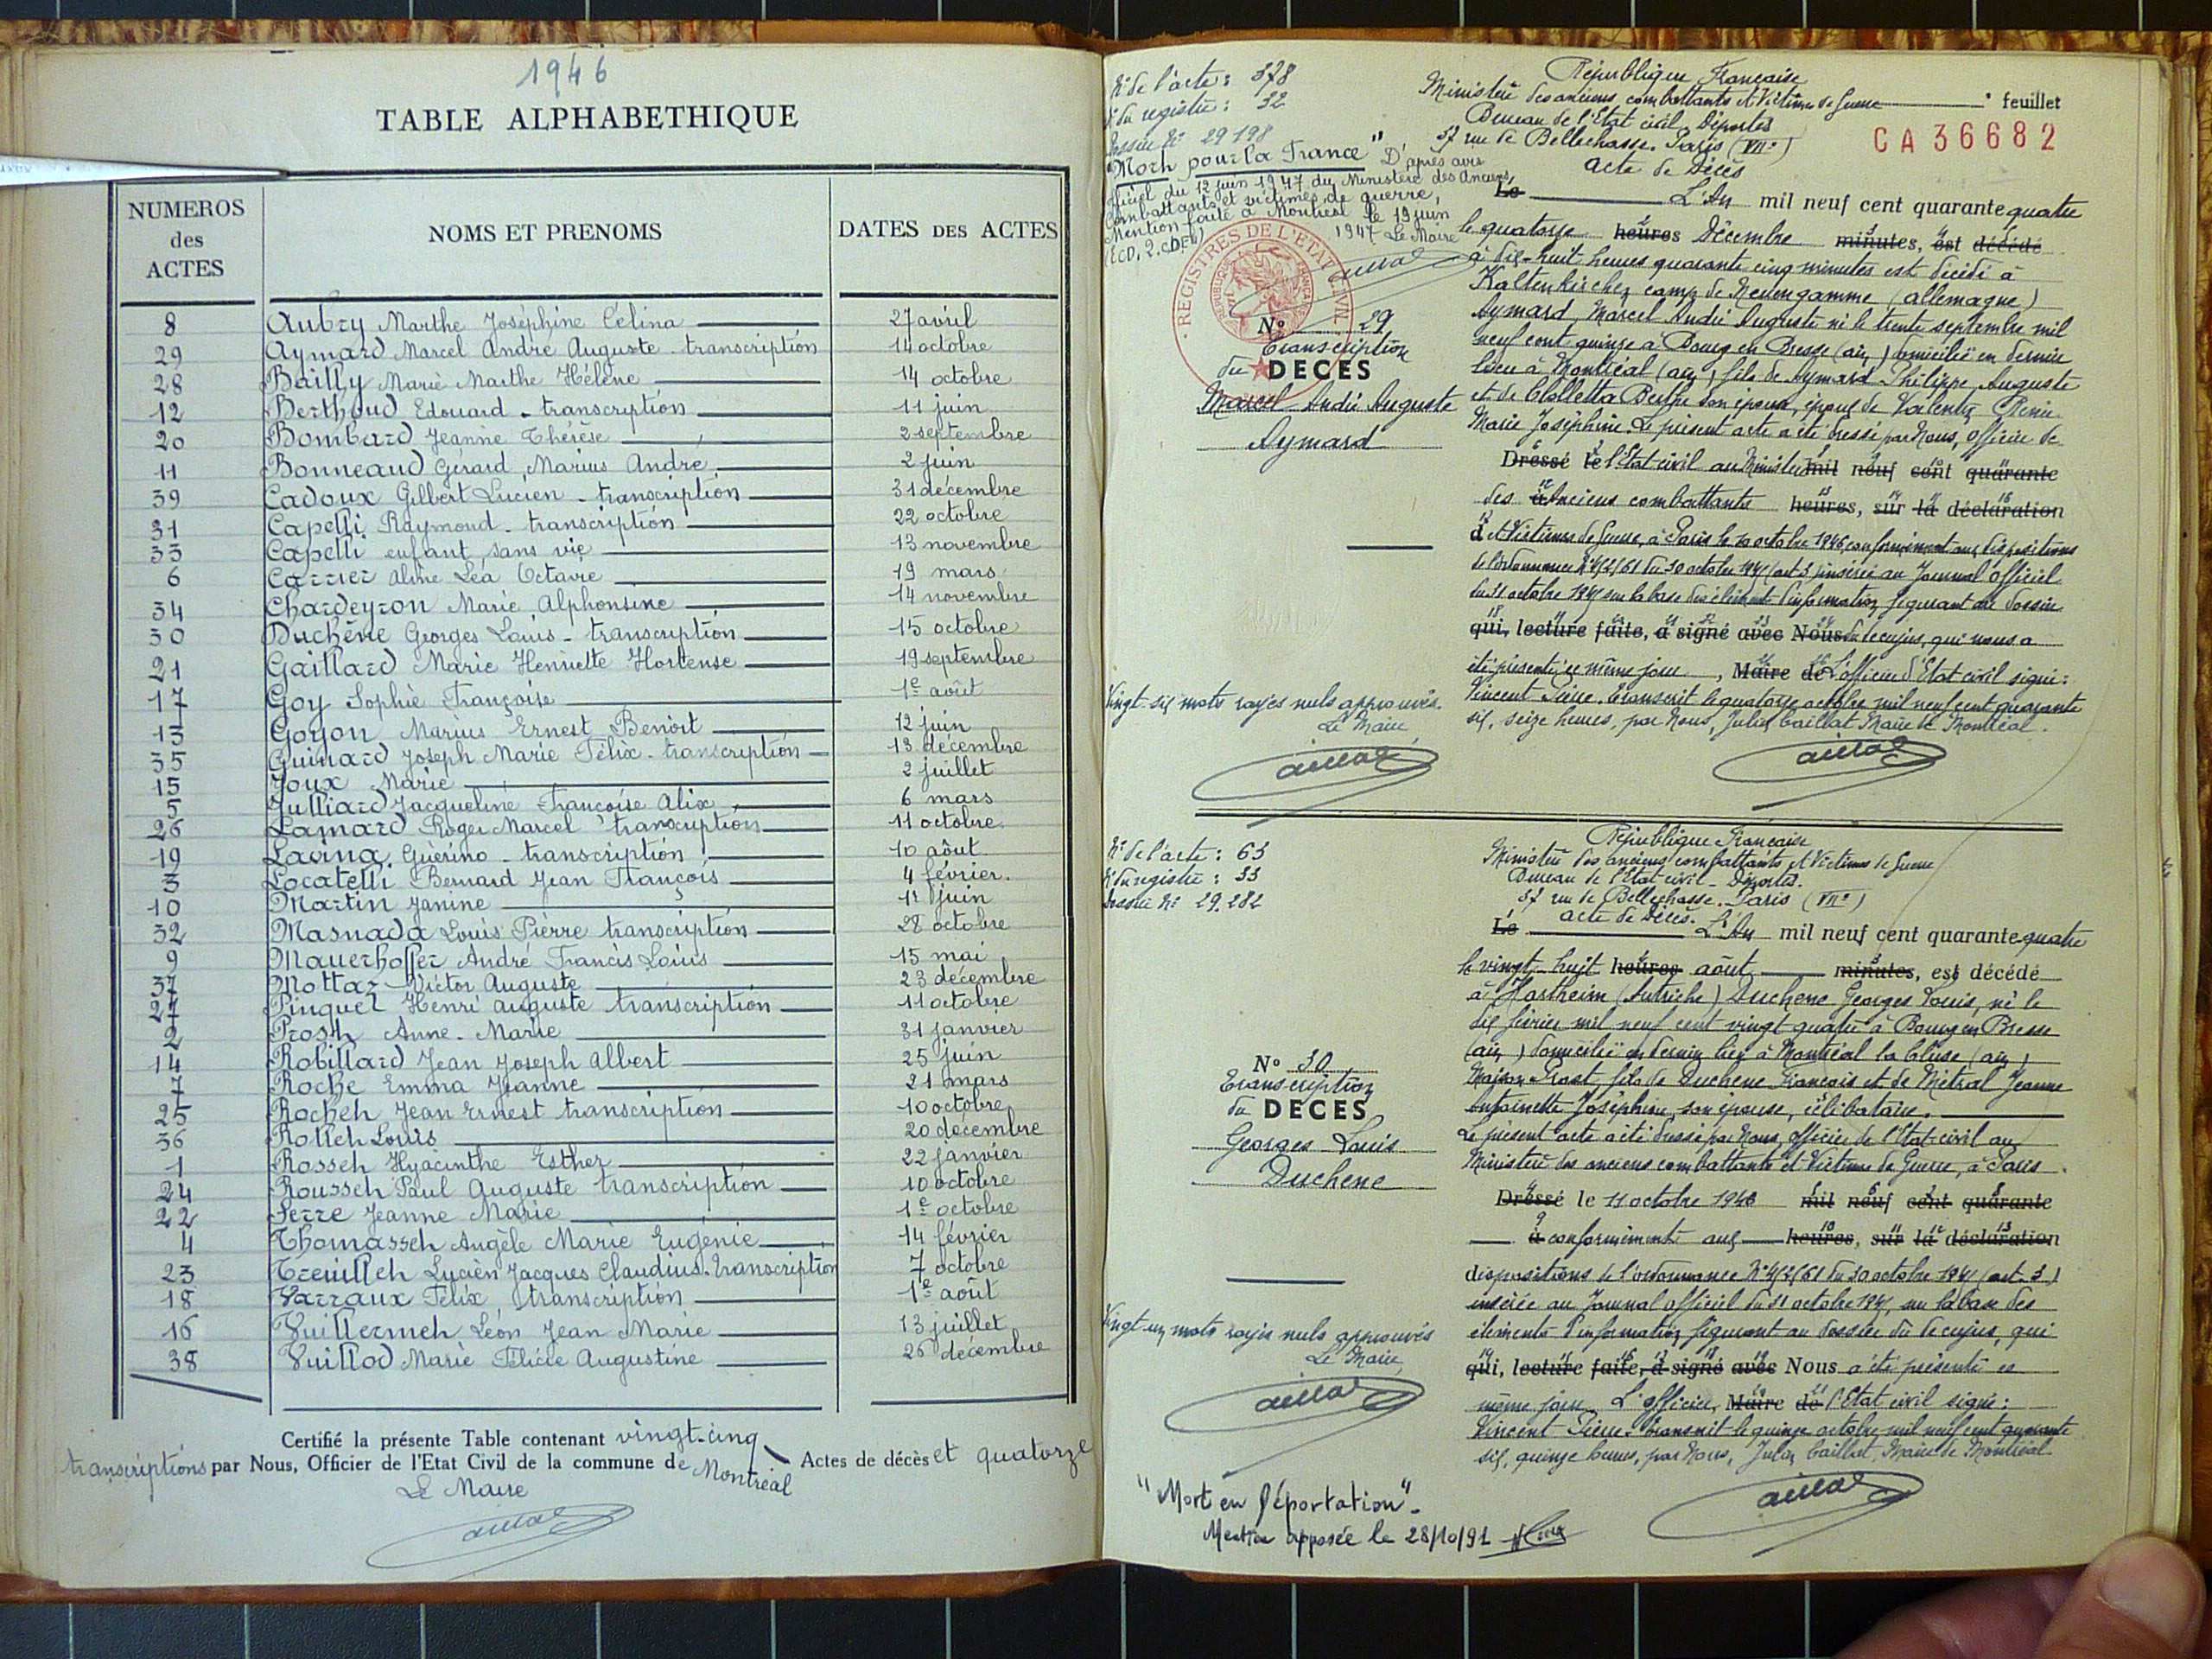 1946
TABLE ALPHABETHIQUE
NUMEROS des ACTES
NOMS ET PRENOMS
DATES DES ACTES
8 Aubry Marthe Joséphine Célina 27 avril
29 Aymard Marcel André Auguste - transcription 14 octobre
28 Bailly Marie Marthe Hélène 14 octobre
12 Berthoud Edouard - transcription 11 juin
20 Bombard Jeanne Thérèse 2 septembre
11 Bonneaud Gérard Marius André 2 juin
39 Cadoux Gilbert Lucien - transcription 31 décembre
31 Capelli Raymond - transcription 22 octobre
33 Capelli enfant sans vie 13 novembre
6 Carrier Aline Léa Octavie 19 mars
34 Chardeyron Marie Alphonsine 14 novembre
30 Duchêne Georges Louis - transcription 15 octobre
21 Gaillard Marie Henriette Hortense 19 septembre
17 Goy Sophie Françoise 1e août
13 Goyon Marius Ernest Benoit 12 juin
35 Guinard Joseph Marie Félix - transcription 13 décembre
15 Joux Marie 2 juillet
5 Julliard Jacqueline Françoise Alix 6 mars
26 Lamard Roger Marcel transcription 11 octobre
19 Lavina Guérino - transcription 10 aôut
3 Locatelli Bernard Jean François 4 février.
10 Martin Janine 1e juin
32 Masnada Louis Pierre transcription 28 octobre
9 Mauerhoffer André Francis Louis 15 mai
37 Mottaz Victor Auguste 23 décembre
27 Pinquet Henri Auguste transcription 11 octobre
2 Prost Anne-Marie 31 janvier
14 Robillard Jean Joseph Albert 25 juin
7 Roche Emma Jeanne 21 mars
25 Rochet Jean Ernest transcription 10 octobre
36 Rollet Louis 20 décembre
1 Rosset Hyacinthe Esther 22 janvier
24 Rousset Paul Auguste transcription 10 octobre
22 Serre Jeanne Marie 1e octobre
4 Thomasset Angèle Marie Eugénie 14 février
23 Treuillet Lucien Jacques Claudius - transcription 7 octobre
18 Varraux Félix transcription 1e août
16 Vuillermet Léon Jean Marie 13 juillet
38 Vuillod Marie Félicie Augustine 26 décembre
Certifié la présente Table contenant vingt-cinq Actes de décès et quatorze
transcriptions par Nous, Officier de l'Etat Civil de la commune de Montréal
Le Maire
N° de l'acte : 378
N° du registre : 32
Dossier N° 29198
"Mort pour la France" D'après avis
officiel du 12 juin 1947 du Ministère des Anciens
Combattants et victimes de guerre,
Mention faite à Montréal le 19 juin
1947 Le Maire
REGISTRES DE L'ETAT CIVIL
N° 29
Transcription
du DECES
Marcel André Auguste
Aymard
Vingt-six mots rayés nuls approuvés.
Le Maire
République Française
Ministère des anciens combattants et Victimes de Guerre
° feuillet
Bureau de l'Etat civil - Déportés
37 rue de Bellechasse. Paris (VIIe)
CA 36682
Acte de Décès
Le L'An mil neuf cent quarante quatre
le quatorze heures Décembre minutes, est décédé
à dix-huit heures quarante cinq minutes est décédé à
Kaltenkirchen camp de Neuengamme (allemagne)
Aymard, Marcel André Auguste né le trente septembre mil
neuf cent quinze à Bourg en Bresse (ain) domicilié en dernier
lieu à Montréal (ain) fils de Aymard Philippe Auguste
et de Colletta Berthe son épouse, époux de Valentin Renée
Marie Joséphine. Le présent acte a été dressé par Nous, officier de
Dressé le l'Etat civil au Ministère mil neuf cent quarante
des à Anciens combattants heures, sur la déclaration
d et Victimes de Guerre, à Paris le 10 octobre 1946, conformément aux dispositions
de l'ordonnance N° 45/2561 du 30 octobre 1945 (art 3) insérée au Journal officiel
du 31 octobre 1945 sur la base des éléments d'information figurant au dossier
qui, lecture faite, a signé avec Nous du decujus, qui nous a
été présenté ce même jour, Maire de L'officier d'Etat civil signé :
Vincent Pierre. Transcrit le quatorze octobre mil neuf cent quarante
six, seize heures, par Nous, Julien Caillat Maire de Montréal.
N° de l'acte : 63
N° du registre : 33
Dossier N° 29.282
N° 30
Transcription
du DECES
Georges Louis
Duchene
Vingt un mots rayés nuls approuvés
Le Maire
"Mort en Déportation".
Mention apposée le 28/10/91
République Française
Ministère des anciens combattants et Victimes de Guerre
Bureau de l'Etat civil - Déportés.
37 rue de Bellechasse. Paris (VIIe)
acte de Décès.
Le L'An mil neuf cent quarante quatre
le vingt-huit heures août minutes, est décédé
à Hartheim (Autriche) Duchene Georges Louis, né le
dix février mil neuf cent vingt quatre à Bourg en Bresse
(ain) domicilié en dernier lieu à Montréal la Cluse (ain)
Maison Prost, fils de Duchene François et de Mietral Jeanne
Antoinette Joséphine, son épouse, célibataire.
Le présent acte a été dressé par Nous, officier de l'Etat-civil au
Ministère des anciens combattants et Victimes de Guerre, à Paris
Dressé le 11 octobre 1946 mil neuf cent quarante
à conformément aux heures, sur la déclaration
dispositions de l'ordonnance N° 45/2561 du 30 octobre 1945 (art. 3)
insérée au Journal officiel du 31 octobre 1945, sur la base des
éléments d'information figurant au dossier du decujus, qui
qui, lecture faite, a signé avec Nous a été présenté ce
même jour L'officier Maire de l'Etat civil signé :
Vincent Pierre. Transcrit le quinze octobre mil neuf cent quarante
six, quinze heures, par Nous, Julien Caillat, Maire de Montréal